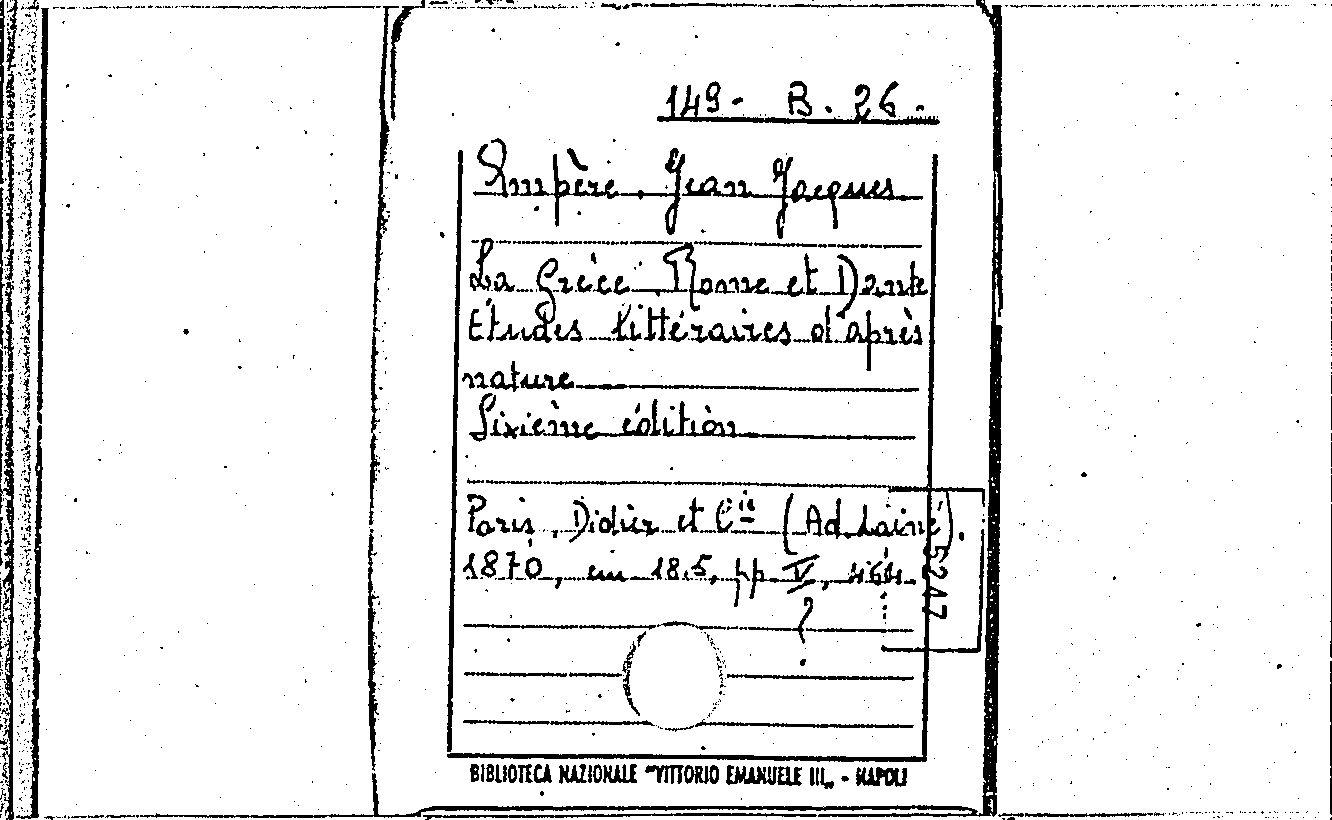 149 - B. 26.
Ampère, Jean Jacques
La Grèce, Rome et Dante
Études littéraires d'après
nature
Sixième édition
Paris, Didier et Cie (Ad. Lainé).
1870, in 18.5, pp. IV, 464.
?
5247
BIBLIOTECA NAZIONALE "VITTORIO EMANUELE III„ - NAPOLI